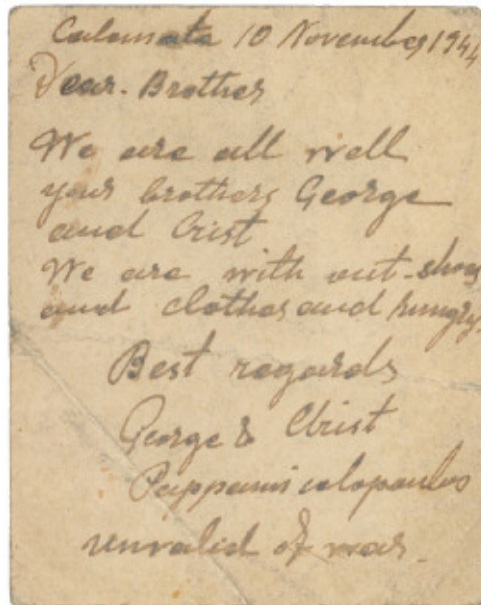 Calamata 10 November 1944
Dear. Brother
We are all well
your brothers George
and Crist
We are with out-shoes
and clothes and hungry.
Best regards
George & Christ
Pappanicolopoulos
unvalid of war.